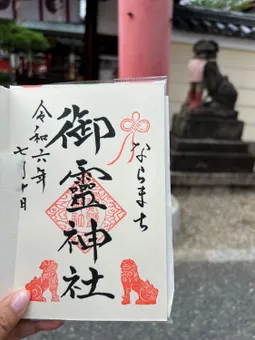 ならまち
御靈神社
令和六年
七月十日